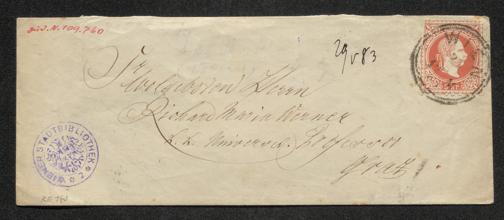 J.N. 109.760
29 V 83
Hochgeboren Herrn
Richard Maria Werner
k. k. Univers. Professor
Graz
WIENER STADTBIBLIOTHEK